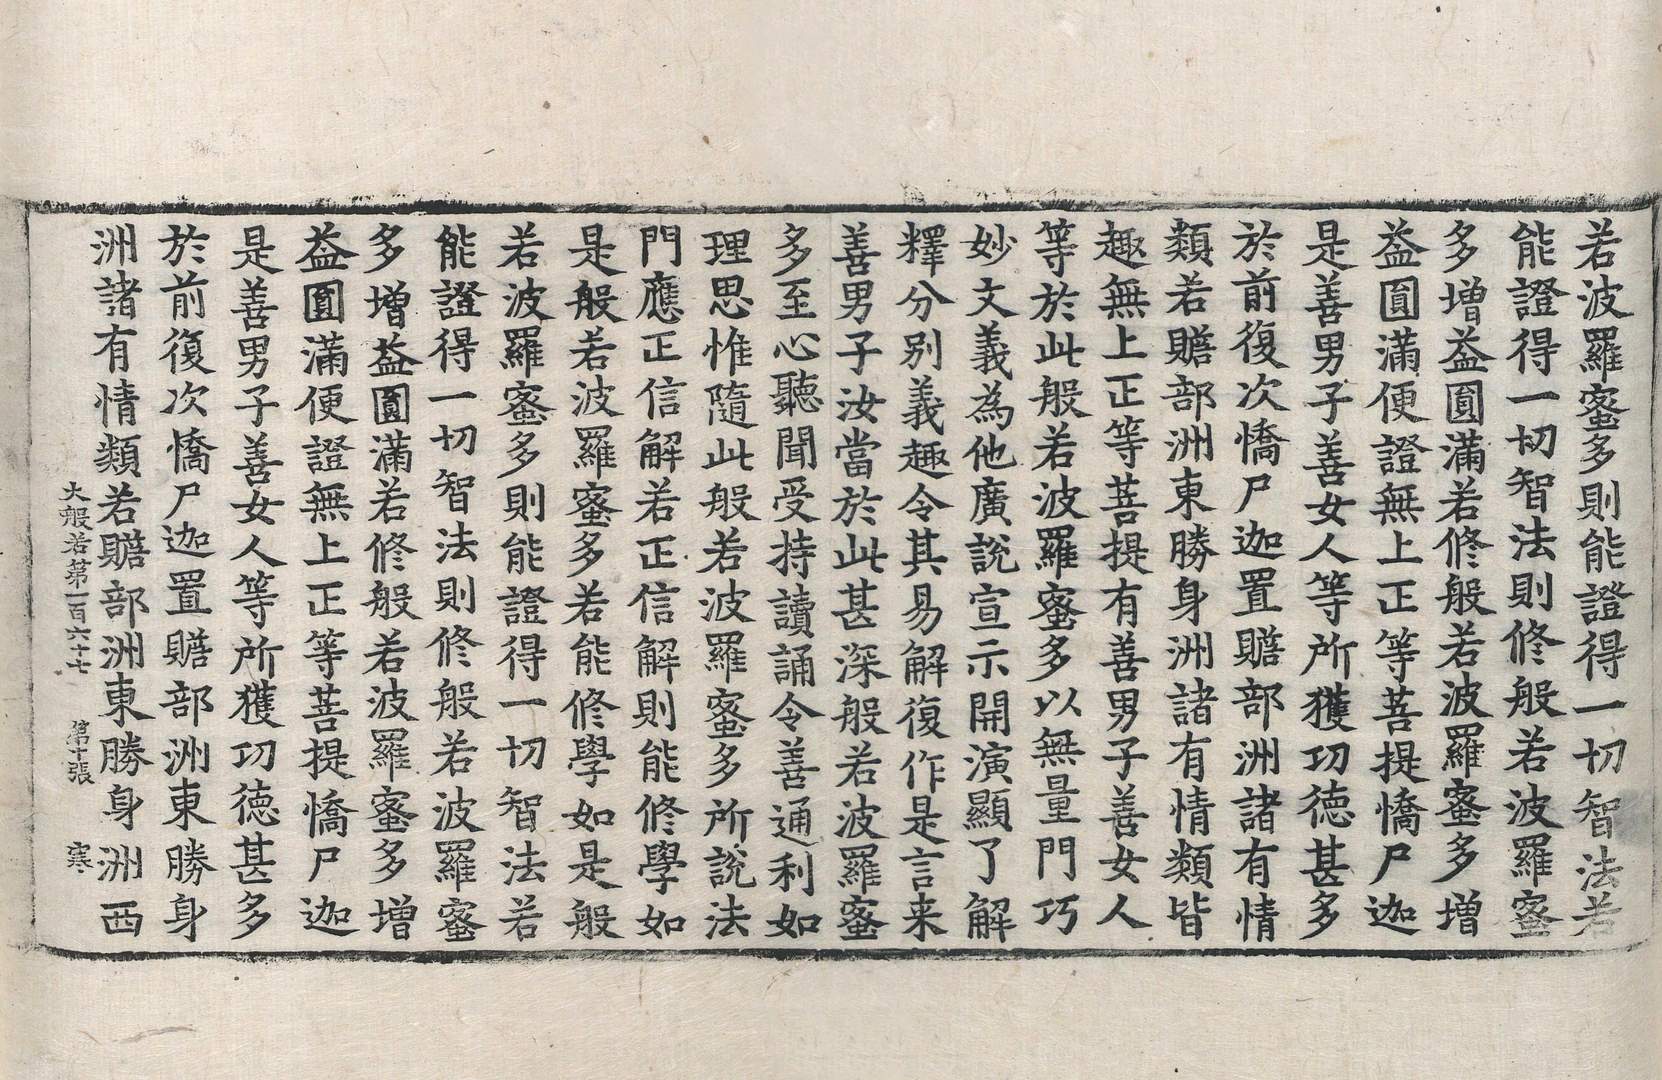 若波羅蜜多則能證得一切智法若
能證得一切智法則修般若波羅蜜
多增益圓滿若修般若波羅蜜多增
益圓滿便證無上正等菩提憍尸迦
是善男子善女人等所獲功德甚多
於前復次憍尸迦置贍部洲諸有情
類若贍部洲東勝身洲諸有情類皆
趣無上正等菩提有善男子善女人
等於此般若波羅蜜多以無量門巧
妙文義為他廣說宣示開演顯了解
釋分別義趣令其易解復作是言来
善男子汝當於此甚深般若波羅蜜
多至心聽聞受持讀誦令善通利如
理思惟隨此般若波羅蜜多所說法
門應正信解若正信解則能修學如
是般若波羅蜜多若能修學如是般
若波羅蜜多則能證得一切智法若
能證得一切智法則修般若波羅蜜
多增益圓滿若修般若波羅蜜多增
益圓滿便證無上正等菩提憍尸迦
是善男子善女人等所獲功德甚多
於前復次憍尸迦置贍部洲東勝身
洲諸有情類若贍部洲東勝身洲西
大般若第一百六十七 第十張 寒